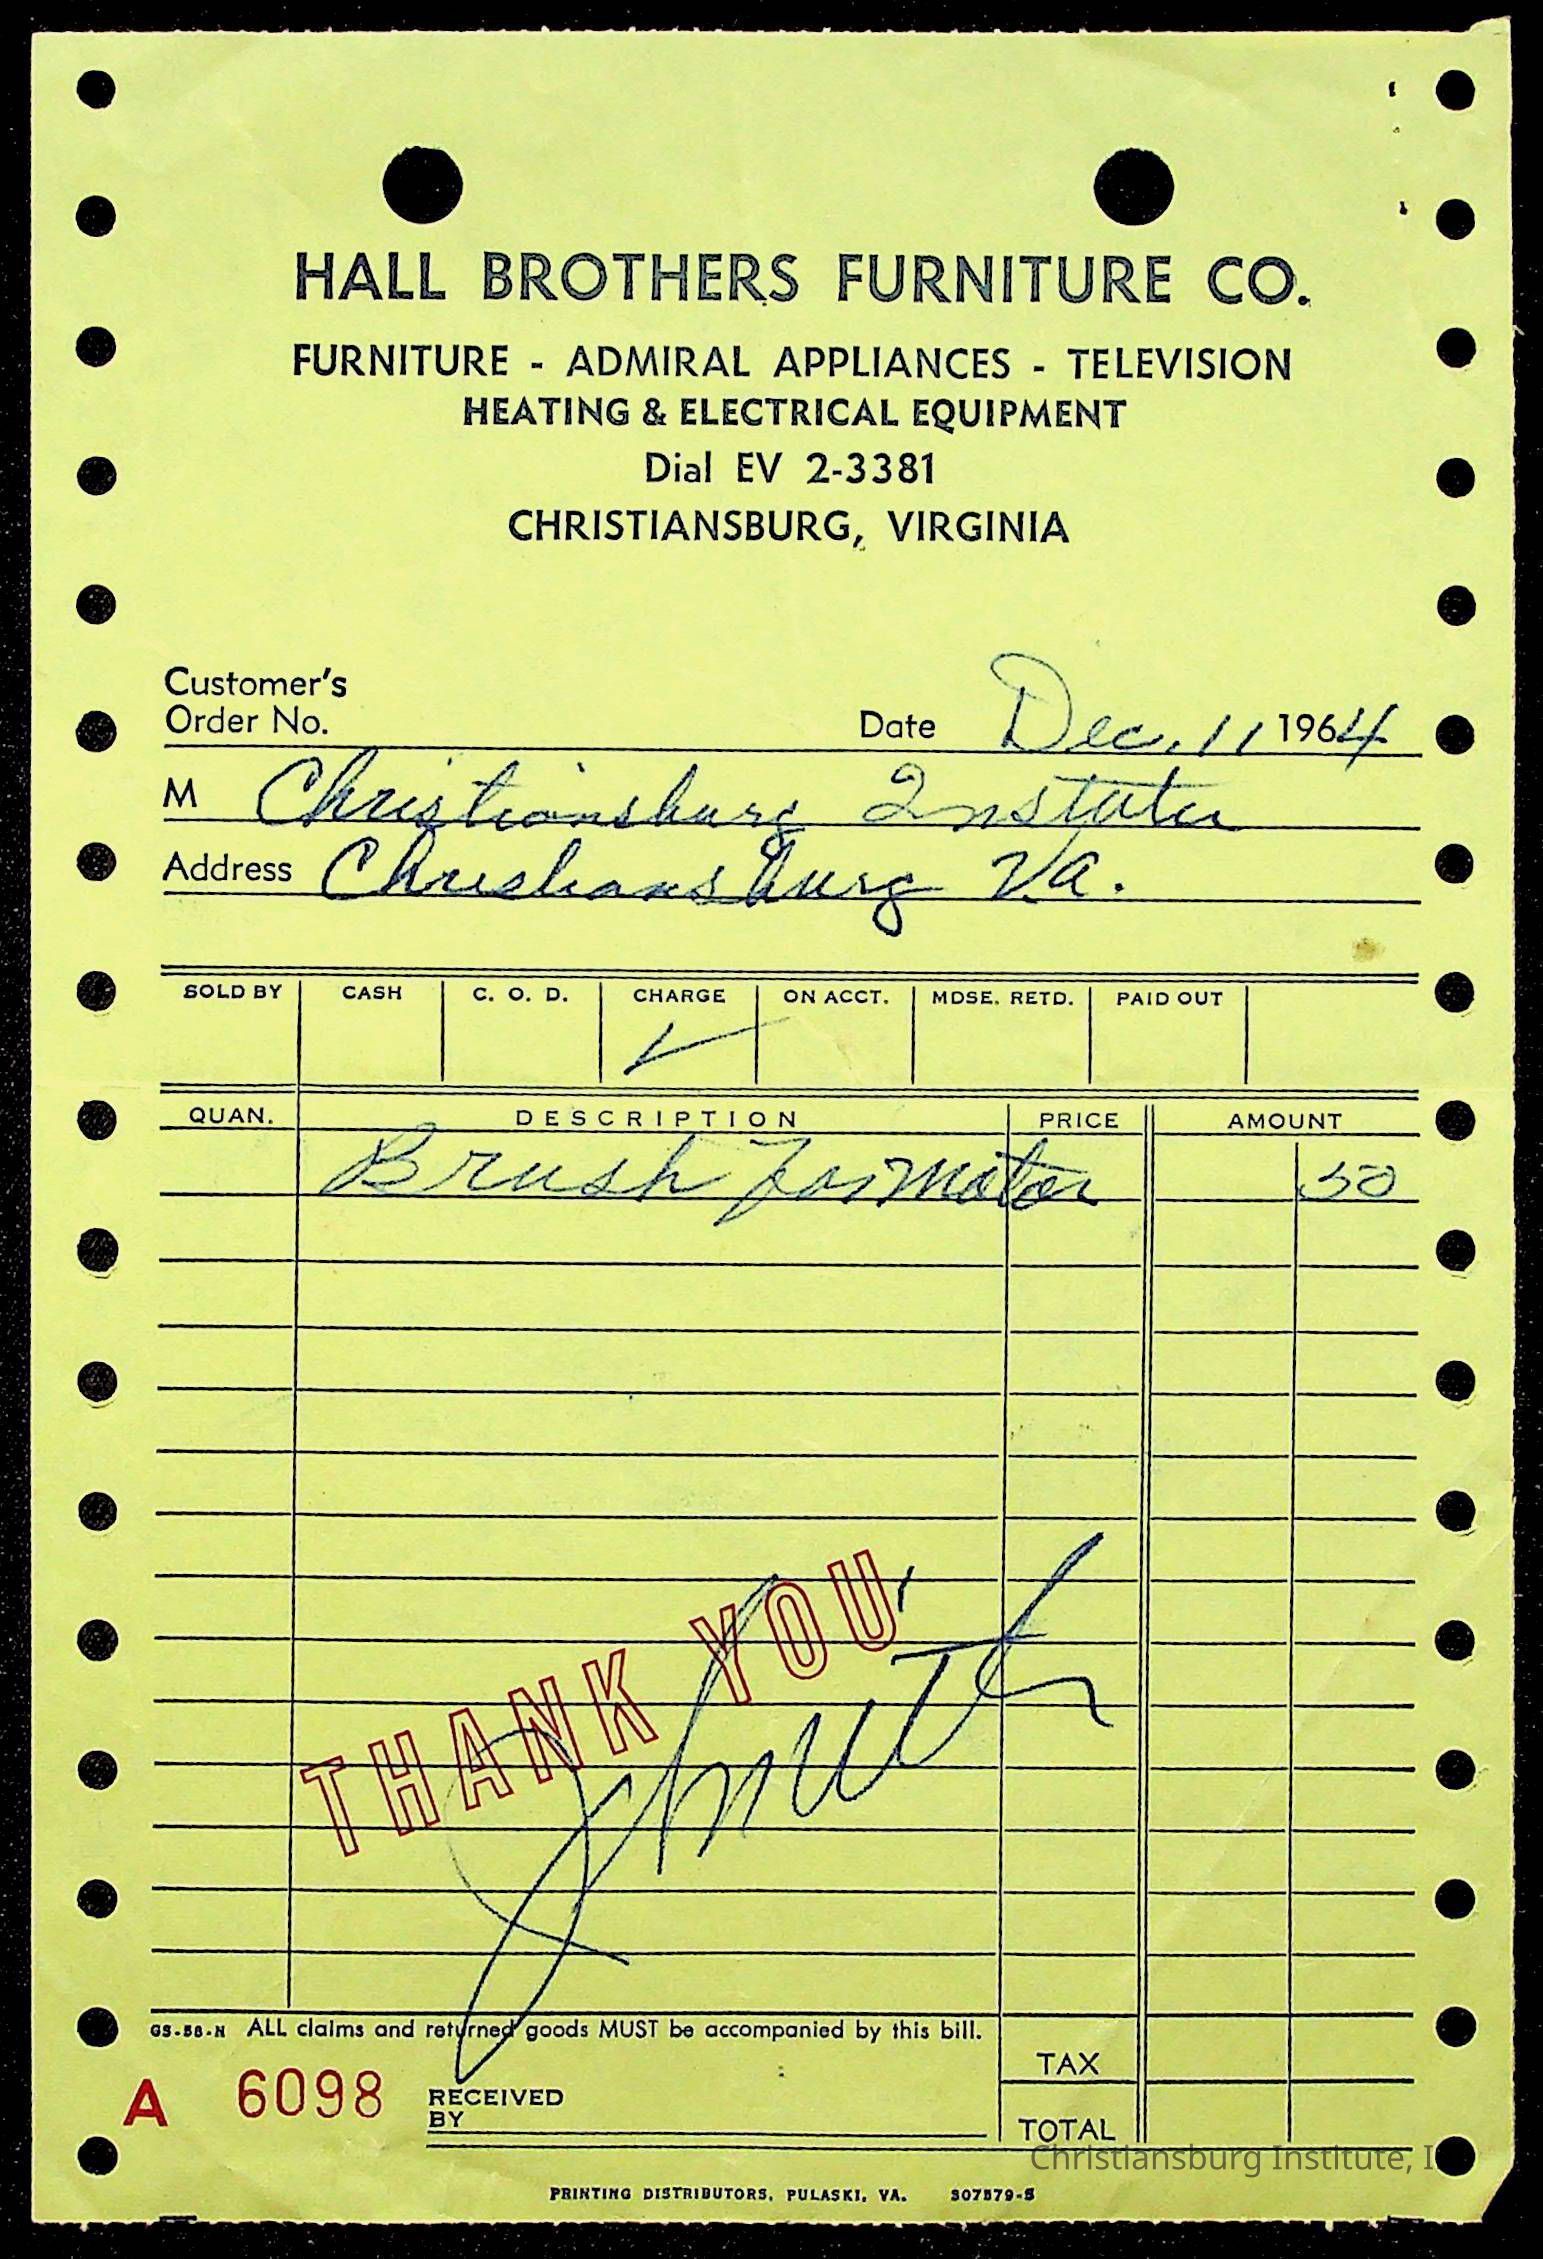 HALL BROTHERS FURNITURE CO.
FURNITURE - ADMIRAL APPLIANCES - TELEVISION
HEATING & ELECTRICAL EQUIPMENT
Dial EV 2-3381
CHRISTIANSBURG, VIRGINIA
Customer's
Order No. Date Dec. 11 1964
M Christiansburg Institute
Address Christiansburg Va.
SOLD BY CASH C. O. D. CHARGE ON ACCT. MDSE. RETD. PAID OUT
✓
QUAN. DESCRIPTION PRICE AMOUNT
Brush for motor 50
THANK YOU
GS-58-N ALL claims and returned goods MUST be accompanied by this bill.
TAX
A 6098 RECEIVED
BY
TOTAL
Christiansburg Institute, I
PRINTING DISTRIBUTORS, PULASKI, VA. 307579-S